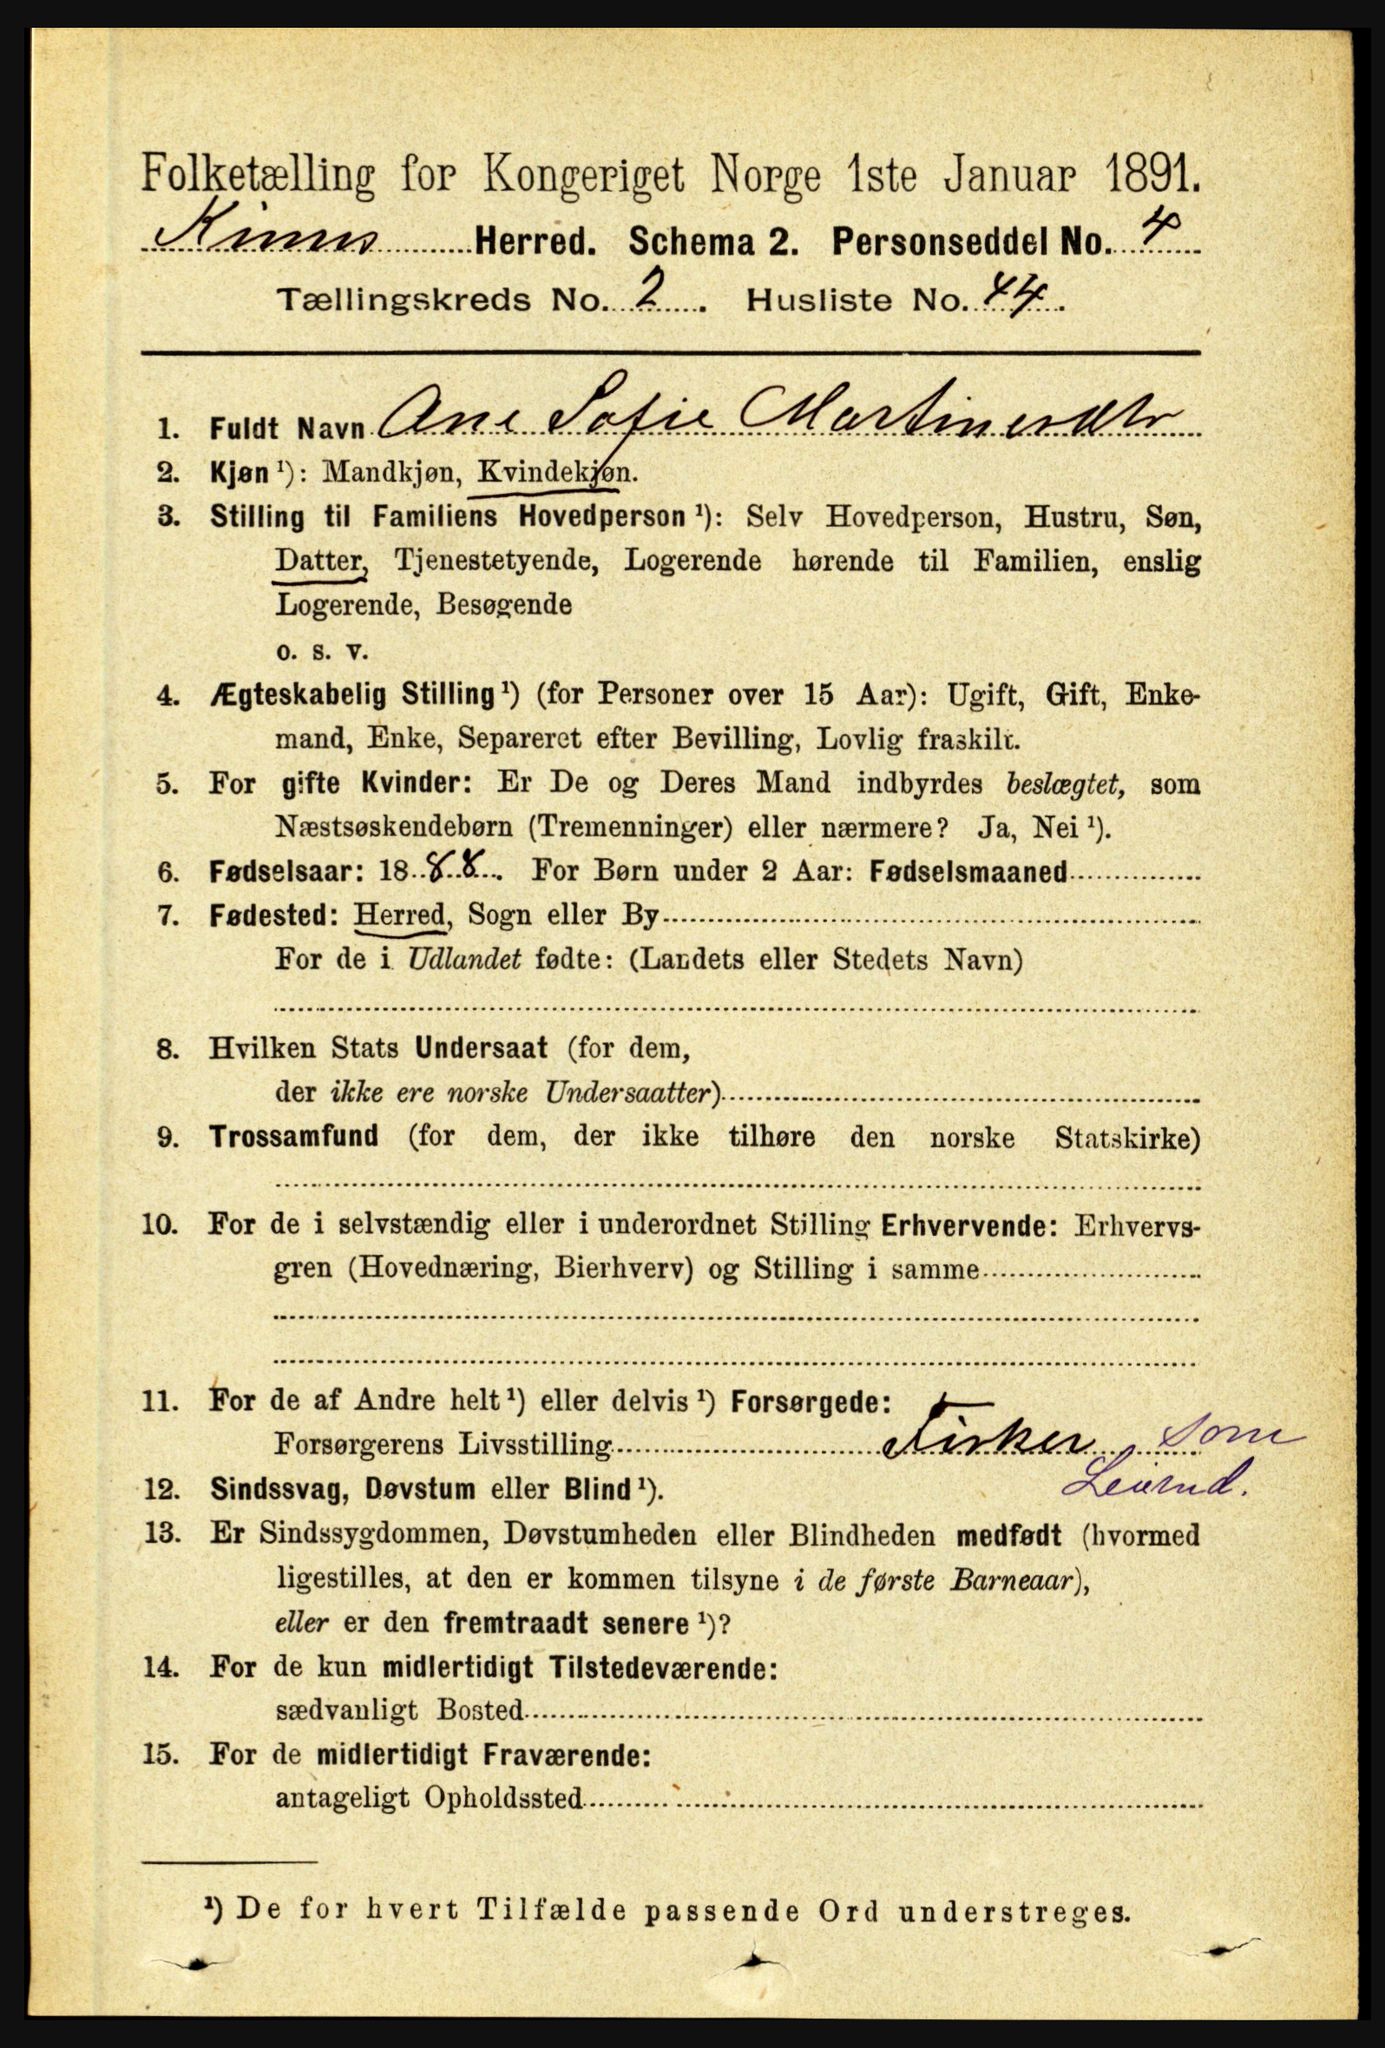 Folketælling for Kongeriget Norge 1ste Januar 1891.
Kinns Herred. Schema 2. Personseddel No. 4
Tællingskreds No. 2. Husliste No. 44.
1. Fuldt Navn Ane Sofie Martinesdtr
2. Kjøn ¹): Mandkjøn, Kvindekjøn.
3. Stilling til Familiens Hovedperson ¹): Selv Hovedperson, Hustru, Søn,
Datter, Tjenestetyende, Logerende hørende til Familien, enslig
Logerende, Besøgende
o. s. v.
4. Ægteskabelig Stilling ¹) (for Personer over 15 Aar): Ugift, Gift, Enke-
mand, Enke, Separeret efter Bevilling, Lovlig fraskilt.
5. For gifte Kvinder: Er De og Deres Mand indbyrdes beslægtet, som
Næstsøskendebørn (Tremenninger) eller nærmere? Ja, Nei ¹).
6. Fødselsaar: 1888. For Børn under 2 Aar: Fødselsmaaned
7. Fødested: Herred, Sogn eller By
For de i Udlandet fødte: (Landets eller Stedets Navn)
8. Hvilken Stats Undersaat (for dem,
der ikke ere norske Undersaatter)
9. Trossamfund (for dem, der ikke tilhøre den norske Statskirke)
10. For de i selvstændig eller i underordnet Stilling Erhvervende: Erhvervs-
gren (Hovednæring, Bierhverv) og Stilling i samme
11. For de af Andre helt ¹) eller delvis ¹) Forsørgede:
Forsørgerens Livsstilling Fisker som
Leiernd.
12. Sindssvag, Døvstum eller Blind ¹).
13. Er Sindssygdommen, Døvstumheden eller Blindheden medfødt (hvormed
ligestilles, at den er kommen tilsyne i de første Barneaar),
eller er den fremtraadt senere ¹)?
14. For de kun midlertidigt Tilstedeværende:
sædvanligt Bosted
15. For de midlertidigt Fraværende:
antageligt Opholdssted
¹) De for hvert Tilfælde passende Ord understreges.